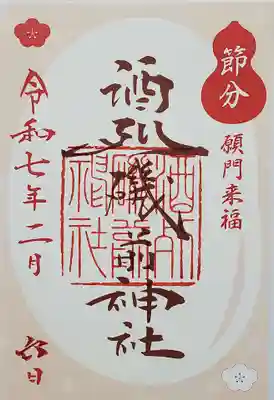 節分
願門来福
酒列磯前神社
酒列
磯前
神社
令和七年二月六日